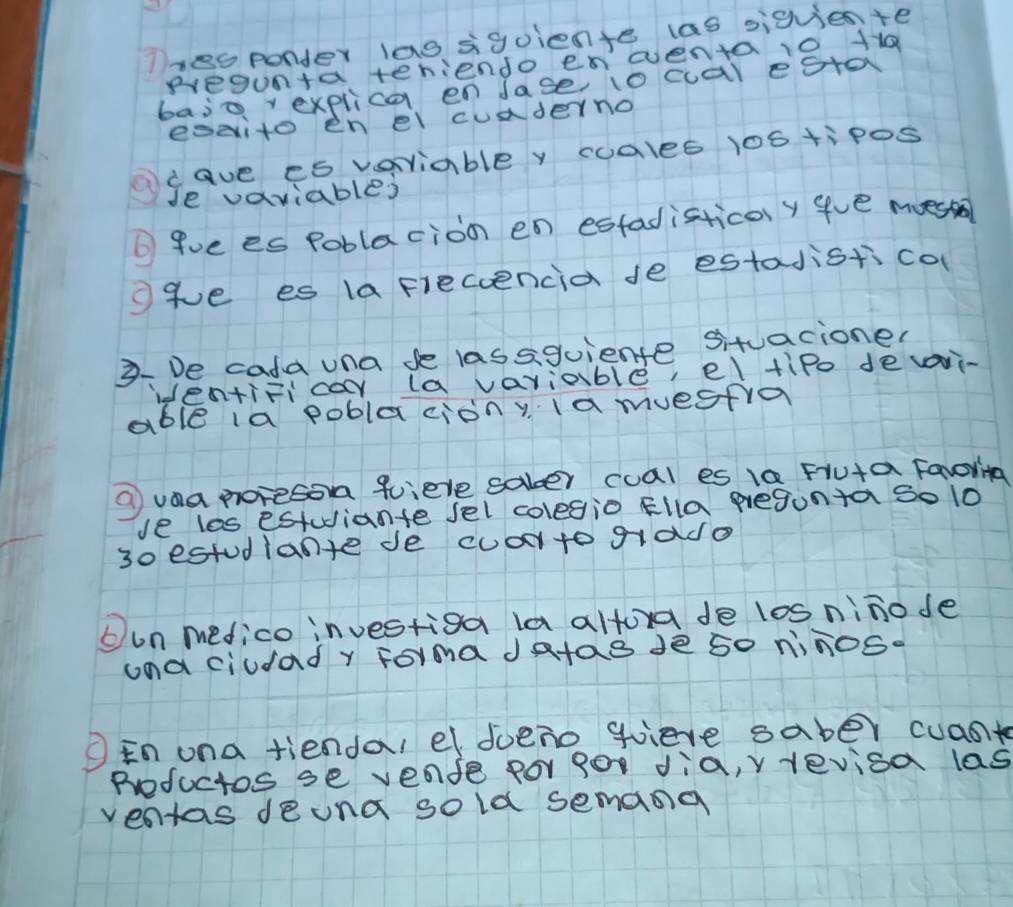 1) responder las siguiente las siguiente
pregunta teniendo en cuenta lo tra
bajo y explica en dase, lo cual esta
escrito en el cuaderno
a) ¿que es variable y cuales los tipos
de variable?
b) que es poblacion en estadistica y que muestra
c) que es la frecuencia de estadistica
3- De cada una de las siguiente situaciones
identificar la variable, el tipo de vari-
able la poblacion y la muestra
a) una profesora quiere saber cual es la fruta favorita
de los estudiante del colegio Ella pregunta solo
30 estudiante de cuarto grado
b) un medico investiga la altura de los niño de
una ciudad y forma datas de 50 niños.
c) En una tienda, el dueño quiere saber cuanto
productos se vende por por dia, y revisa las
ventas de una sola semana